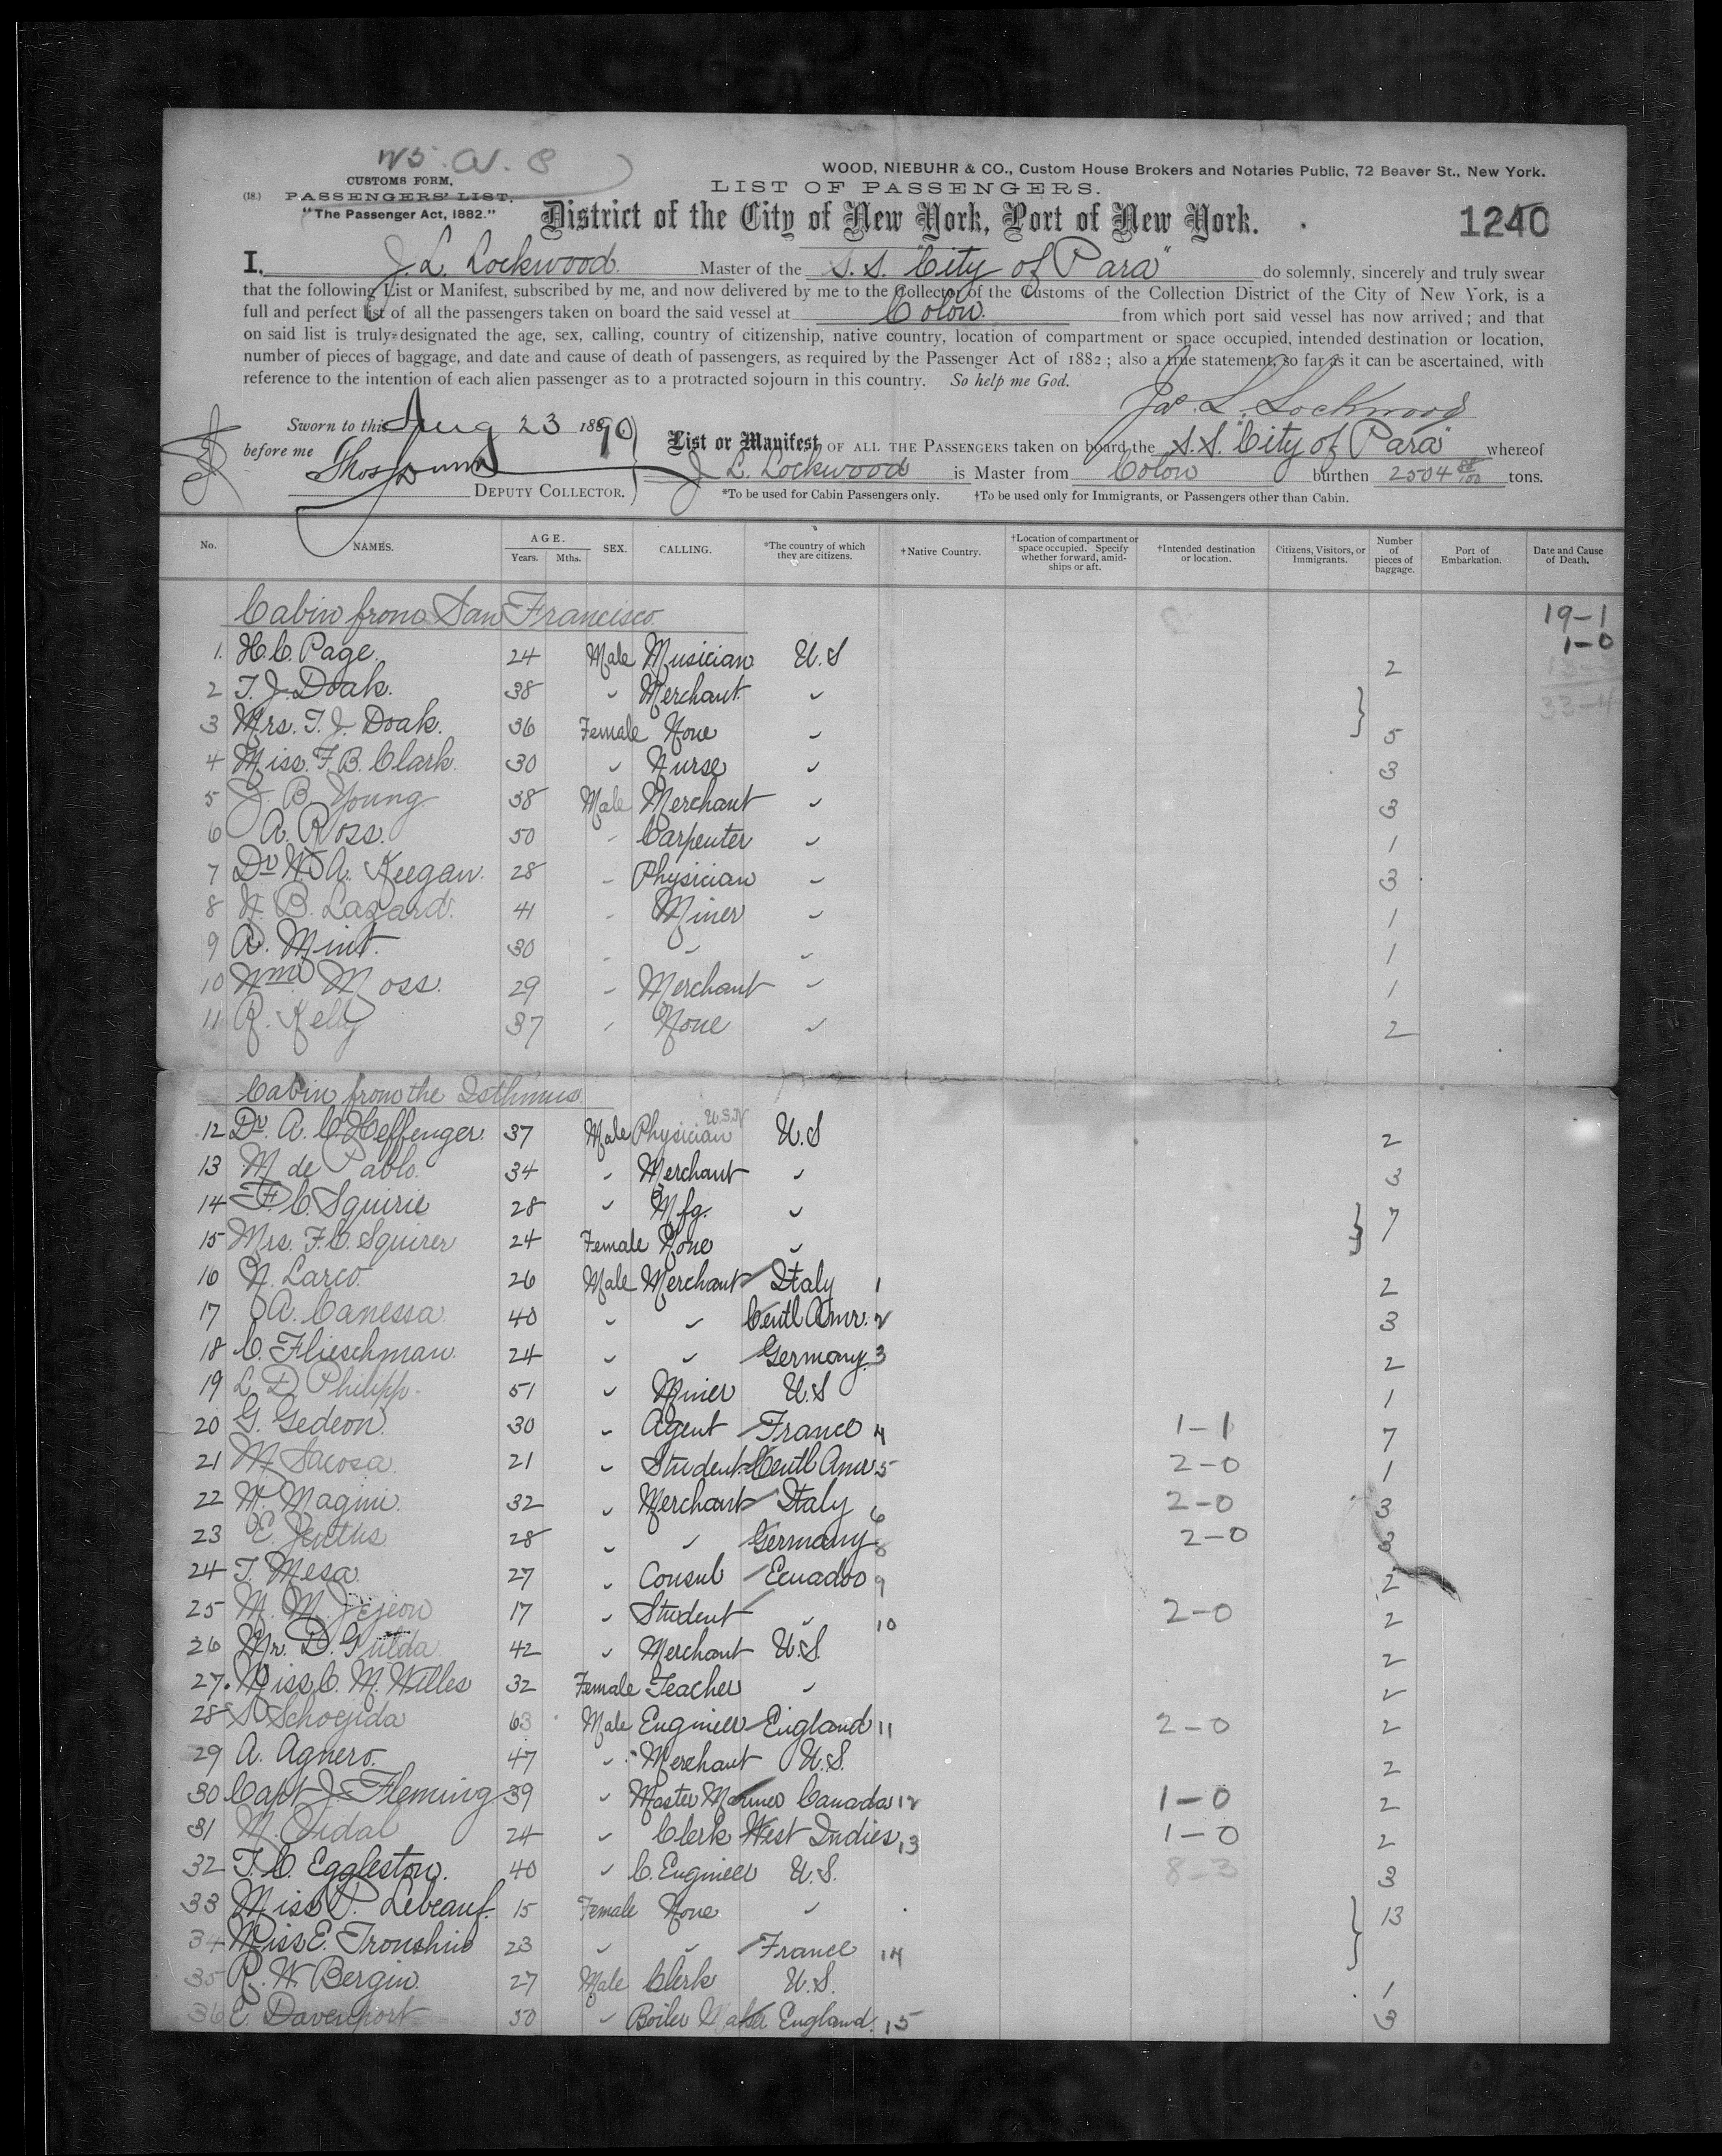 W5. A. 8
CUSTOMS FORM,
(18.) PASSENGERS' LIST.
"The Passenger Act, 1882."
WOOD, NIEBUHR & CO., Custom House Brokers and Notaries Public, 72 Beaver St., New York.
LIST OF PASSENGERS.
District of the City of New York, Port of New York.
1240
I, J. L. Lockwood. Master of the S. S. "City of Para" do solemnly, sincerely and truly swear
that the following List or Manifest, subscribed by me, and now delivered by me to the Collector of the Customs of the Collection District of the City of New York, is a
full and perfect list of all the passengers taken on board the said vessel at Colon. from which port said vessel has now arrived; and that
on said list is truly designated the age, sex, calling, country of citizenship, native country, location of compartment or space occupied, intended destination or location,
number of pieces of baggage, and date and cause of death of passengers, as required by the Passenger Act of 1882; also a true statement, so far as it can be ascertained, with
reference to the intention of each alien passenger as to a protracted sojourn in this country. So help me God.
Jas. L. Lockwood
Sworn to this Aug 23 1890
before me
DEPUTY COLLECTOR.
List or Manifest OF ALL THE PASSENGERS taken on board the S.S. "City of Para" whereof
J L. Lockwood is Master from Colon burthen 2504 tons.
*To be used for Cabin Passengers only. †To be used only for Immigrants, or Passengers other than Cabin.
No. NAMES. AGE. Years. Mths. SEX. CALLING. *The country of which they are citizens. †Native Country. †Location of compartment or space occupied. Specify whether forward, amidships or aft. †Intended destination or location. Citizens, Visitors, or Immigrants. Number of pieces of baggage. Port of Embarkation. Date and Cause of Death.
Cabin from San Francisco. 19-1
1-0
33-4
1. H. C. Page. 24 Male Musician U.S 2
2 T. J. Doak. 38 " Merchant "
3 Mrs. T. J. Doak. 36 Female None " 5
4 Miss. F. B. Clark. 30 " Nurse " 3
5 J. B. Young 38 Male Merchant " 3
6 A. Ross. 50 " Carpenter " 1
7 Dr W. A. Keegan. 28 " Physician " 3
8 H. B. Lazard. 41 " Miner " 1
9 A. Mint. 30 " " " 1
10 Wm. Moss. 29 " Merchant " 1
11 R. Kelly 37 " None " 2
Cabin from the Isthmus
12 Dr. A. C. Heffenger. 37 Male Physician U.S.N U.S 2
13 M de Pablo. 34 " Merchant " 3
14 F. C. Squirie 28 " Mfg. " 7
15 Mrs. F. C. Squirer 24 Female None "
16 N. Larco. 26 Male Merchant Italy 1 2
17 A. Canessa. 40 " " Centl Amr. 2 3
18 C. Flieschman. 24 " " Germany. 3 2
19 L. D. Philipp. 51 " Miner U.S 1
20 G. Gedeon. 30 " Agent France 4 1-1 7
21 M Sacosa. 21 " Student Centl Amr 5 2-0 1
22 M. Magini. 32 " Merchant Italy 6 2-0 3
23 E. 28 " " Germany 8 2-0 3
24 T. Mesa. 27 " Consul Ecuador 9 2
25 M. M. 17 " Student " 10 2-0 2
26 Mr. D. 42 " Merchant U.S. 2
27. Miss C. M. Willes 32 Female Teacher " 2
28 S. 63 Male Engineer England 11 2-0 2
29 A. Agnero. 47 " Merchant U.S. 2
30 Capt J. Fleming 39 " Master Mariner Canada 12 1-0 2
31 M. Vidal 24 " Clerk West Indies 13 1-0 2
32 T. C. Eggleston. 40 " C. Engineer U.S. 8-3 3
33 Miss P. Lebeauf. 15 Female None " 13
34 Miss E. Tronshin 23 " " France 14
35 R. W. Bergin. 27 Male Clerk U.S. 1
36 E. Davenport 50 " Boiler Maker England. 15 3